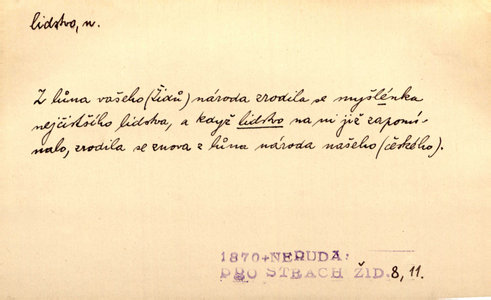 lidstvo, n.
Z lůna vašeho (Židů) národa zrodila se myšlénka
nejčistšího lidstva, a když lidstvo na ni již zapomí-
nalo, zrodila se znova z lůna národa našeho (českého).
1870+NERUDA:
PRO STRACH ŽID. 8, 11.